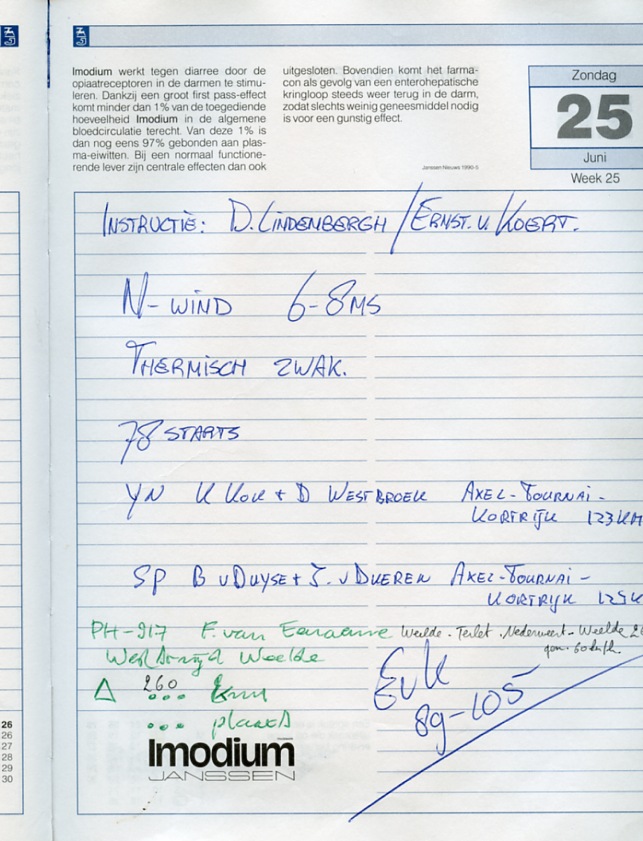 Imodium werkt tegen diarree door de
opiaatreceptoren in de darmen te stimu-
leren. Dankzij een groot first pass-effect
komt minder dan 1% van de toegediende
hoeveelheid Imodium in de algemene
bloedcirculatie terecht. Van deze 1% is
dan nog eens 97% gebonden aan plas-
ma-eiwitten. Bij een normaal functione-
rende lever zijn centrale effecten dan ook
uitgesloten. Bovendien komt het farma-
con als gevolg van een enterohepatische
kringloop steeds weer terug in de darm,
zodat slechts weinig geneesmiddel nodig
is voor een gunstig effect.
Janssen Nieuws 1990-5
Zondag
25
Juni
Week 25
INSTRUCTIE: D. LINDENBERGH / ERNST. V KOERT.
N-WIND 6-8 MS
THERMISCH ZWAK.
78 STARTS
YN K KOK + D WESTBROEK AXEL-TOURNAI-
KORTRIJK 123KM
SP B VDUYSE + J. VDUEREN AXEL-TOURNAI-
KORTRIJK 125K
PH-917 F. van
Weelde. Terlet. Nederweert. Weelde
Weelde
gem. 60 km/h.
△ 260 km
... plaats
EvK
89-105
Imodium
JANSSEN
26
26
27
28
29
30